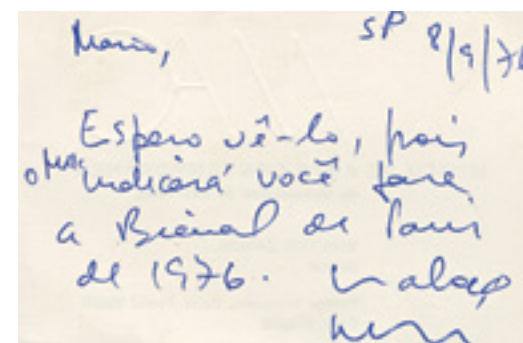 Mario,
SP 8/9/76
Espero vê-lo, pois
o MAC indicará você para
a Bienal de Paris
de 1976. Um abraço